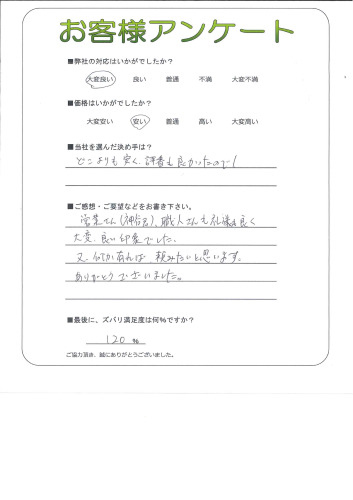 お客様アンケート
■弊社の対応はいかがでしたか？
大変良い 良い 普通 不満 大変不満
■価格はいかがでしたか？
大変安い 安い 普通 高い 大変高い
■当社を選んだ決め手は？
どこよりも安く、評番も良かったので！
■ご感想・ご要望などをお書き下さい。
営業さん(神谷君)、職人さんも礼儀も良く
大変、良い印象でした。
又、何か有れば 頼みたいと思います。
ありがとうございました。
■最後に、ズバリ満足度は何％ですか？
120 %
ご協力頂き、誠にありがとうございました。